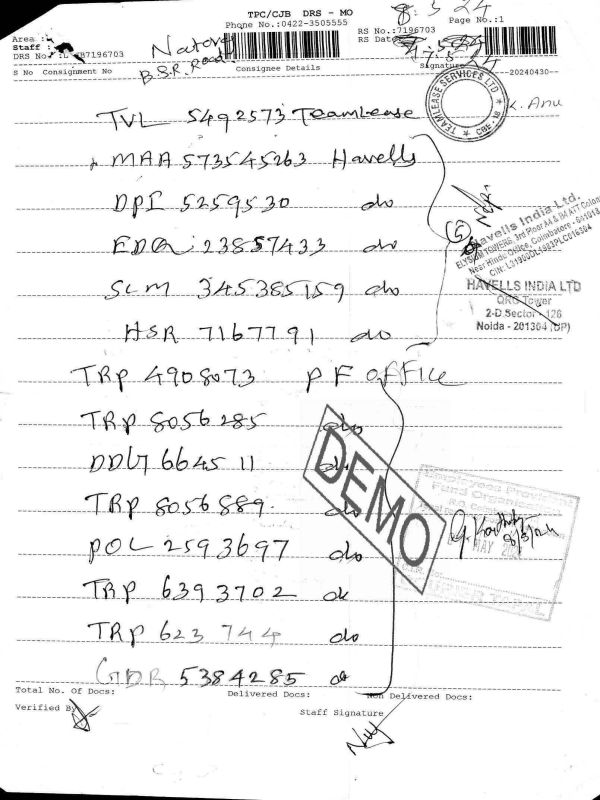 TPC/CJB DRS - MO
8.5.24
Phone No.:0422-3505555
Page No.:1
Area :
RS No.:7196703
Staff :
RS Date
DRS No.: B7196703
B.S.R. Road
Signature
S No Consignment No Consignee Details 20240430
TEAMLEASE SERVICES LTD
CBE
K. Anu
TVL 5492573 TeamLease
MAA 573545263 Havells
DPI 5259530 do
EDR 23857433 do
SLM 345385159 do
HSR 7167791 do
5
Havells India Ltd.
ELYSIUM TOWERS, 3rd Floor
Near Hindu Office, Coimbatore - 641018
CIN: L31900DL1983PLC016304
HAVELLS INDIA LTD
QRG Tower
2-D, Sector - 126
Noida - 201304 (UP)
TRP 4908073 PF OFFICE
TRP 8056285 do
DDU 664511 do
TRP 8056889 do
POL 2593697 do
TRP 6393702 do
TRP 623744 do
GDR 5384285 do
DEMO
Employees Provident
Fund Organi
MAY
8/5/24
Total No. Of Docs: Delivered Docs: Non Delivered Docs:
Verified By
Staff Signature